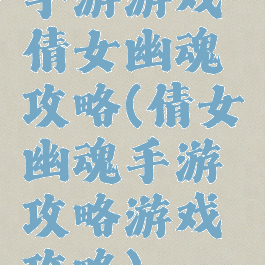 手游游戏
倩女幽魂
攻略(倩女
幽魂手游
攻略游戏
攻略)